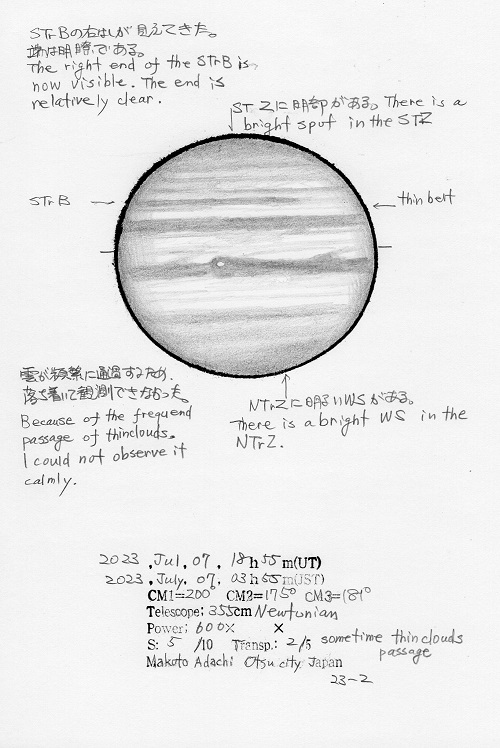 STrBの右はしが見えてきた。
端は明瞭である。
The right end of the STrB is
now visible. The end is
relatively clear.
STZに明部がある。There is a
bright spot in the STZ
STrB
thin belt
雲が頻繁に通過するため、
落ち着いて観測できなかった。
Because of the frequend
passage of thinclouds,
I could not observe it
calmly.
NTrZに明るいWSがある。
There is a bright WS in the
NTrZ.
2023 ,Jul, 07, 18h 55m(UT)
2023 ,July, 07, 03h 55m(JST)
CM1=200° CM2=175° CM3=(81°
Telescope; 355cm Newtonian
Power; 600× ×
S: 5 /10 Transp.: 2/5 sometime thinclouds
passage
Makoto Adachi Otsu city Japan
23-2